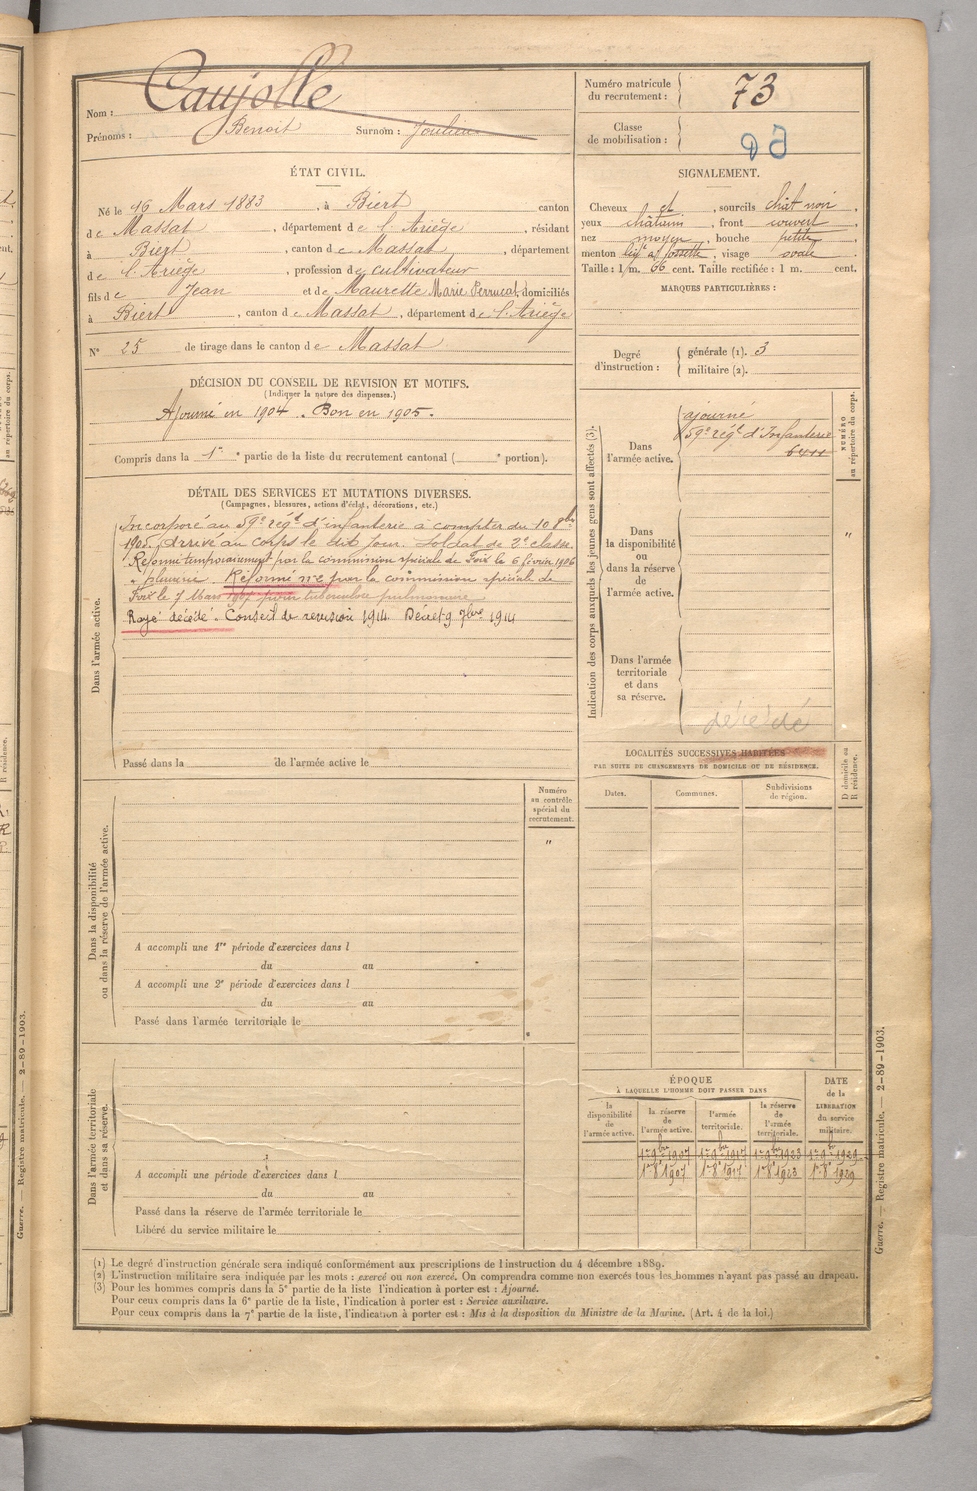 Nom : Caujolle
Prénoms : Benoit Surnom :
Numéro matricule du recrutement : 73
Classe de mobilisation :
ÉTAT CIVIL.
Né le 16 Mars 1883, à Biert canton
de Massat, département de l'Ariège, résidant
à Biert, canton de Massat, département
de l'Ariège, profession de cultivateur
fils de Jean et de Maurette Marie, domiciliés
à Biert, canton de Massat, département de l'Ariège
N° 25 de tirage dans le canton de Massat
SIGNALEMENT.
Cheveux et, sourcils chat noir,
yeux châtains, front couvert,
nez moyen, bouche petite,
menton, visage ovale
Taille : 1 m. 66 cent. Taille rectifiée : 1 m. cent.
MARQUES PARTICULIÈRES :
Degré d'instruction : générale (1). 3
militaire (2).
DÉCISION DU CONSEIL DE REVISION ET MOTIFS.
(Indiquer la nature des dispenses.)
Ajourné en 1904. Bon en 1905.
Compris dans la 1re partie de la liste du recrutement cantonal ( portion).
DÉTAIL DES SERVICES ET MUTATIONS DIVERSES.
(Campagnes, blessures, actions d'éclat, décorations, etc.)
Dans l'armée active.
Incorporé au 59e régt d'infanterie à compter du 10 8bre
1905. Arrivé au corps le dit jour. Soldat de 2e classe.
Réformé temporairement par la commission spéciale de Foix le 6 février 1906
pleurésie. Réformé n°2 par la commission spéciale de
Foix le 7 Mars 1907 pour tuberculose pulmonaire
Rayé décédé. Conseil de revision 1914. Décret 9 7bre 1914
Passé dans la de l'armée active le
Indication des corps auxquels les jeunes gens sont affectés (3).
NUMÉRO au répertoire du corps.
Dans l'armée active.
ajourné
59e régt d'Infanterie
6411
Dans la disponibilité ou dans la réserve de l'armée active.
"
Dans l'armée territoriale et dans sa réserve.
décédé
LOCALITÉS SUCCESSIVES HABITÉES
PAR SUITE DE CHANGEMENTS DE DOMICILE OU DE RÉSIDENCE.
Dates. Communes. Subdivisions de région. D domicile ou R résidence.
Dans la disponibilité ou dans la réserve de l'armée active.
Numéro au contrôle spécial du recrutement.
"
A accompli une 1re période d'exercices dans l
du au
A accompli une 2e période d'exercices dans l
du au
Passé dans l'armée territoriale le
Dans l'armée territoriale et dans sa réserve.
A accompli une période d'exercices dans l
du au
Passé dans la réserve de l'armée territoriale le
Libéré du service militaire le
ÉPOQUE
À LAQUELLE L'HOMME DOIT PASSER DANS
la disponibilité de l'armée active.
la réserve de l'armée active.
l'armée territoriale.
la réserve de l'armée territoriale.
DATE de la LIBÉRATION du service militaire.
1er 9bre 1907 1er 9bre 1917 1er 9bre 1923 1er 9bre 1929
1er 8e 1907 1er 8e 1917 1er 8e 1923 1er 8e 1929
(1) Le degré d'instruction générale sera indiqué conformément aux prescriptions de l'instruction du 4 décembre 1889.
(2) L'instruction militaire sera indiquée par les mots : exercé ou non exercé. On comprendra comme non exercés tous les hommes n'ayant pas passé au drapeau.
(3) Pour les hommes compris dans la 5e partie de la liste l'indication à porter est : Ajourné.
Pour ceux compris dans la 6e partie de la liste, l'indication à porter est : Service auxiliaire.
Pour ceux compris dans la 7e partie de la liste, l'indication à porter est : Mis à la disposition du Ministre de la Marine. (Art. 4 de la loi.)
Guerre. — Registre matricule. — 2-89-1903.
Guerre. — Registre matricule. — 2-89-1903.